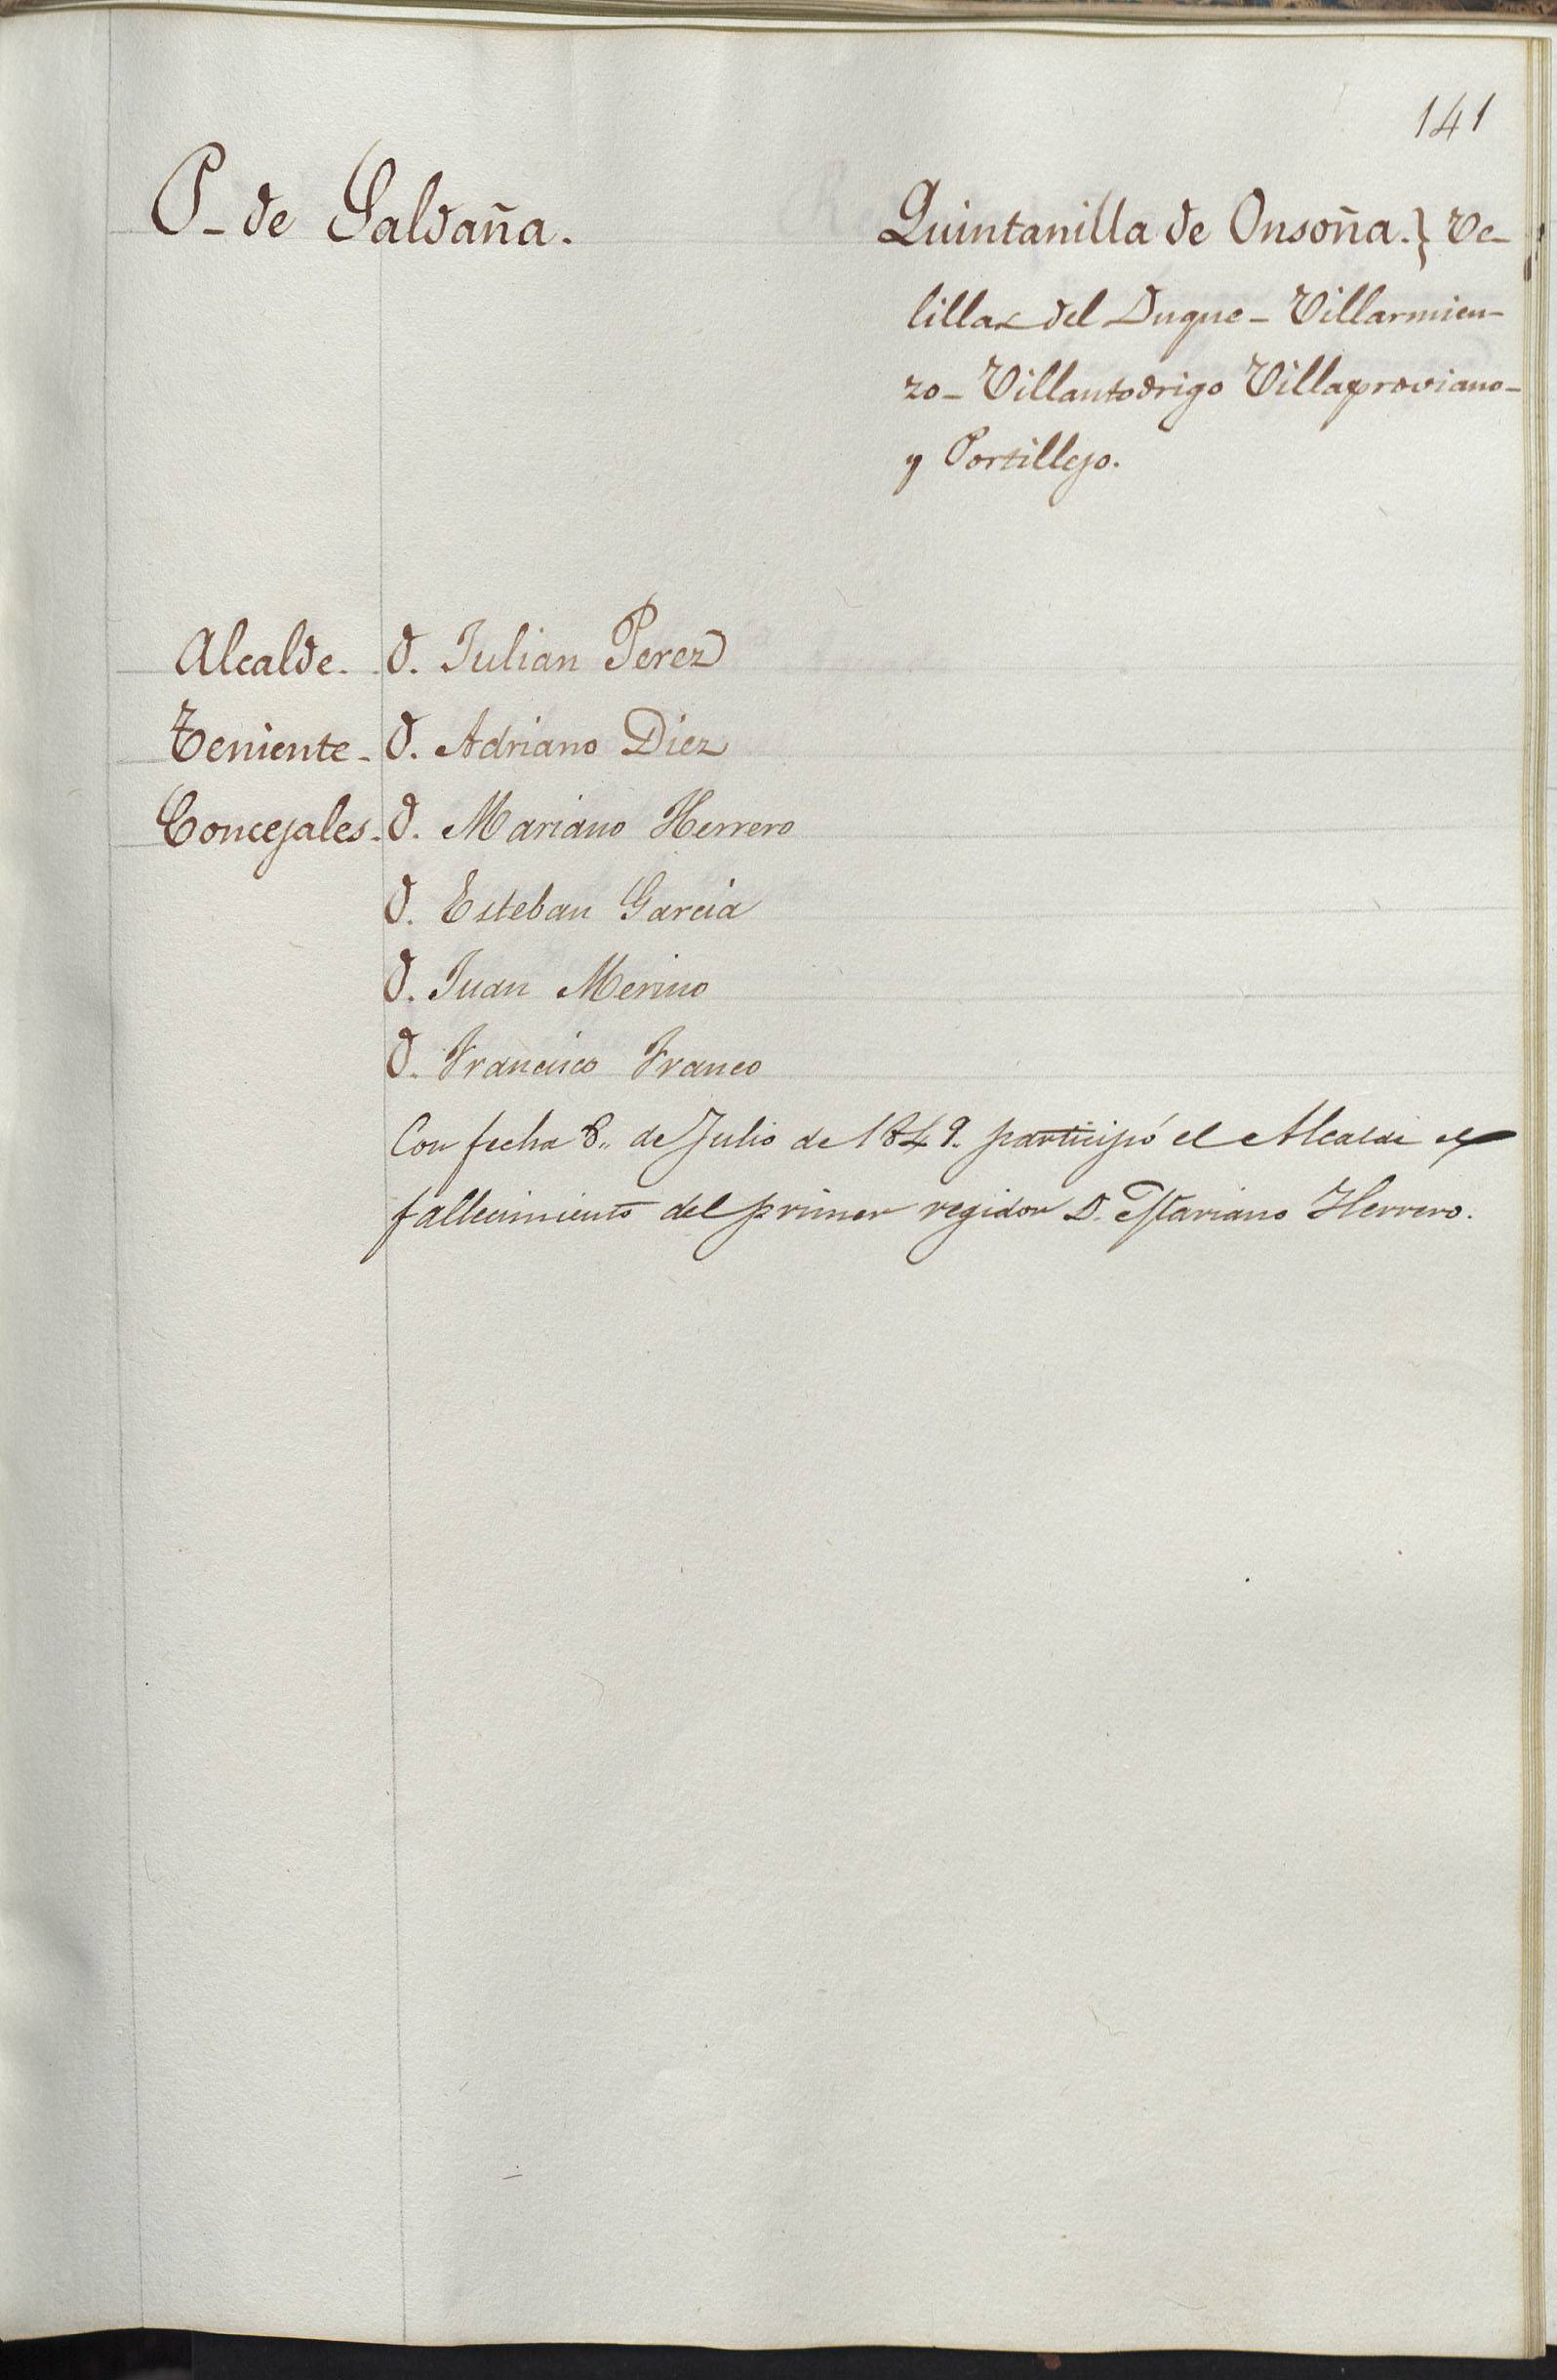 141
P- de Saldaña.
Quintanilla de Onsoña.} Ve-
lillas del Duque- Villarmien-
zo- Villantodrigo Villaproviano-
y Portillejo.
Alcalde. D. Julian Perez
Teniente- D. Adriano Diez
Concejales. D. Mariano Herrero
D. Esteban Garcia
D. Juan Merino
D. Francisco Franco
Con fecha 8,, de Julio de 1849. participó el Alcalde el
fallecimiento del primer regidor D. Mariano Herrero.